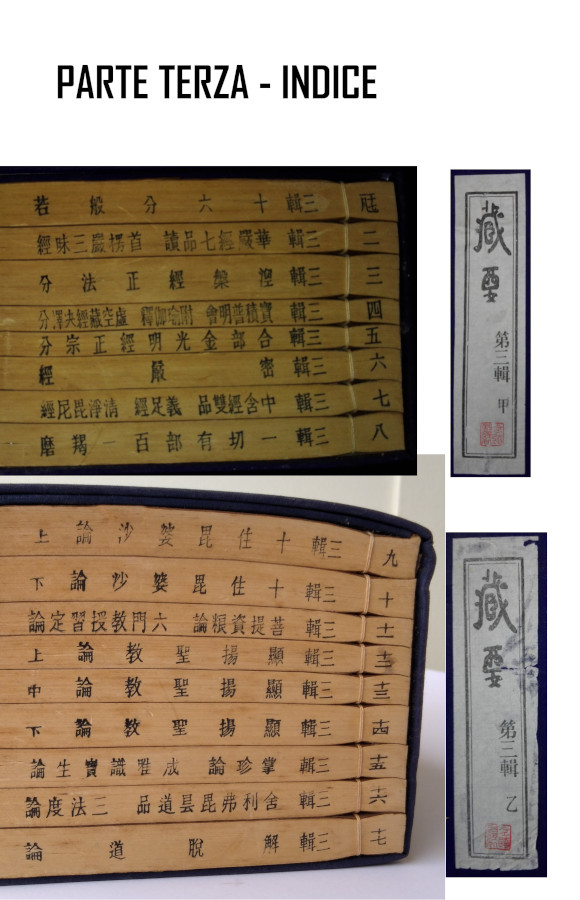 PARTE TERZA - INDICE
三輯 十六分般若
二 三輯 華嚴經七品讀 首楞嚴三昧經
三 三輯 湼槃經正法分
四 三輯 寶積普明會 附瑜伽釋 虛空藏經決擇分
五 三輯 合部金光明經正宗分
六 三輯 密嚴經
七 三輯 中含經雙品 義足經 清淨毘尼經
八 三輯 一切有部百一羯磨
藏要
第三輯 甲
九 三輯 十住毘婆沙論 上
十 三輯 十住毘婆沙論 下
十一 三輯 菩提資粮論 六門教授習定論
十二 三輯 顯揚聖教論 上
十三 三輯 顯揚聖教論 中
十四 三輯 顯揚聖教論 下
十五 三輯 掌珍論 成唯識寶生論
十六 三輯 舍利弗毘曇道品 三法度論
十七 三輯 解脫道論
藏要
第三輯 乙